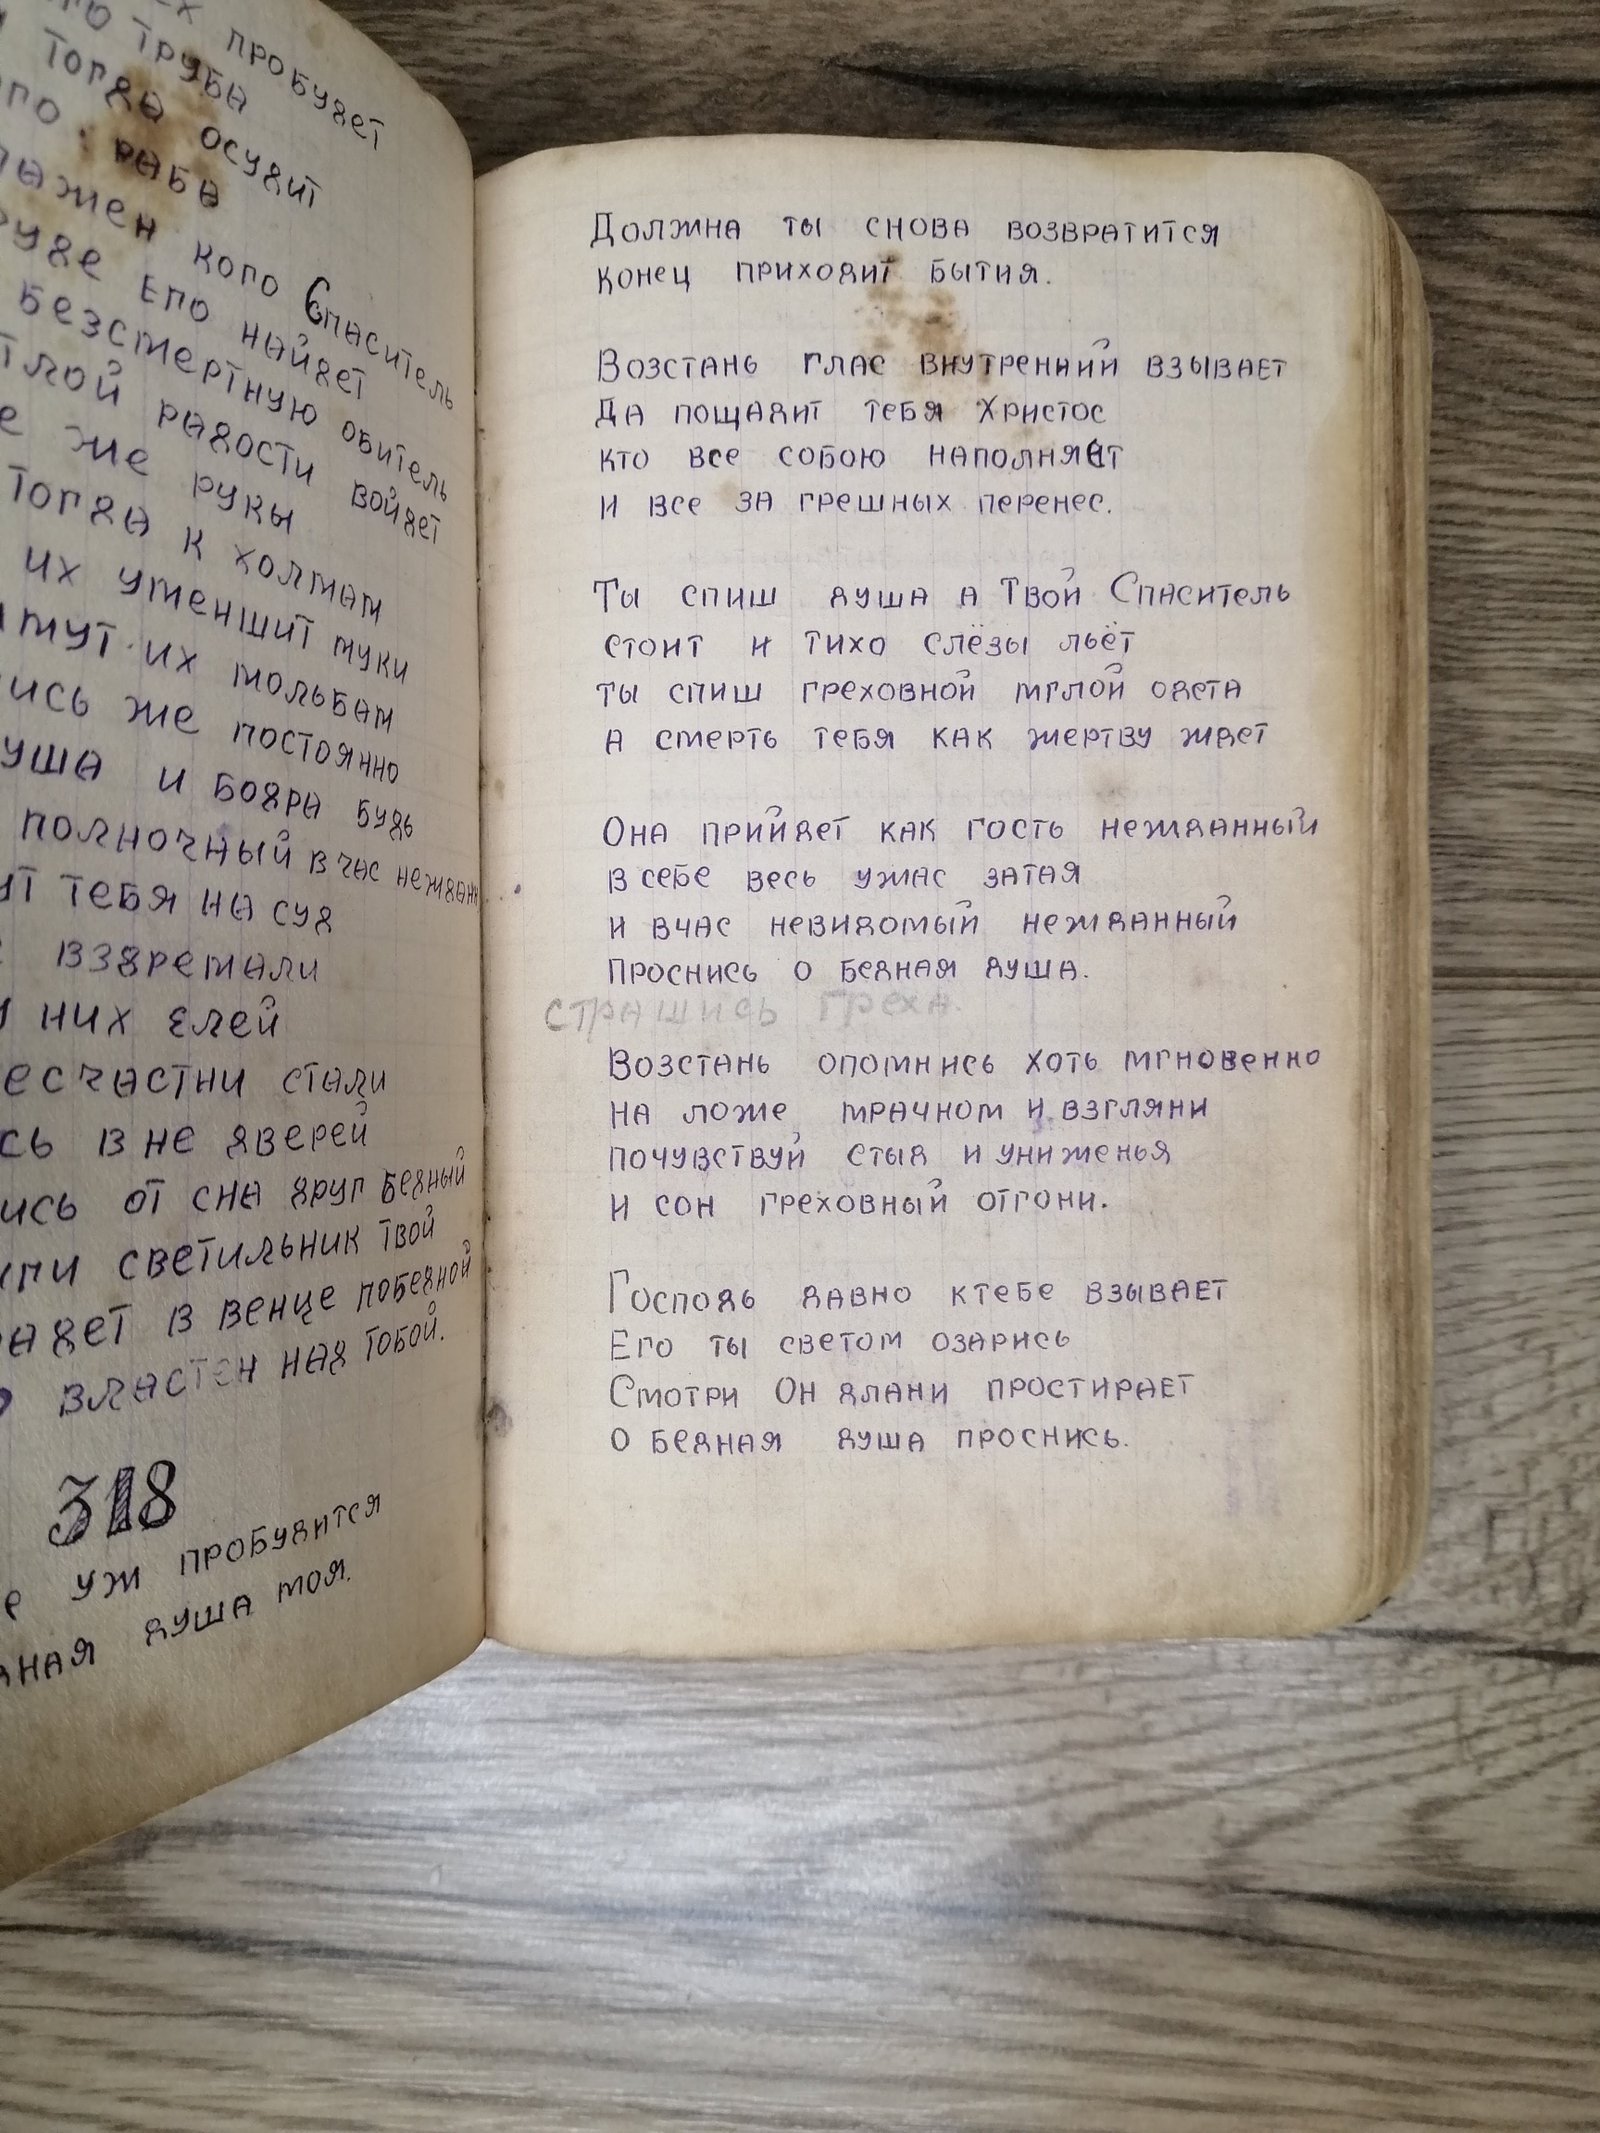 пробудет
труба
тогда осудит
раба
кого Спаситель
его найдет
безсмертную обитель
радости войдет
же руки
тогда к холмам
их уменшит муки
их мольбам
же постоянно
и бодра будь
полночный в час
тебя на суд
вздремали
них елей
стали
в не дверей
от сна друг бедный
светильник твой
в венце победной
властен над тобой.
318
уж пробудится
душа моя.
Должна ты снова возвратится
конец приходит бытия.
Возстань глас внутренний взывает
Да пощадит тебя Христос
кто все собою наполняет
и все за грешных перенес.
Ты спиш душа а Твой Спаситель
стоит и тихо слёзы льёт
ты спиш греховной мглой одета
а смерть тебя как жертву ждет
Она прийдет как гость нежданный
в себе весь ужас затая
и вчас невидомый нежданный
проснись о бедная душа.
страшись греха.
Возстань опомнись хоть мгновенно
на ложе мрачном и взгляни
почувствуй стыд и униженья
и сон греховный отгони.
Господь давно ктебе взывает
Его ты светом озарись
Смотри Он длани простирает
о бедная душа проснись.